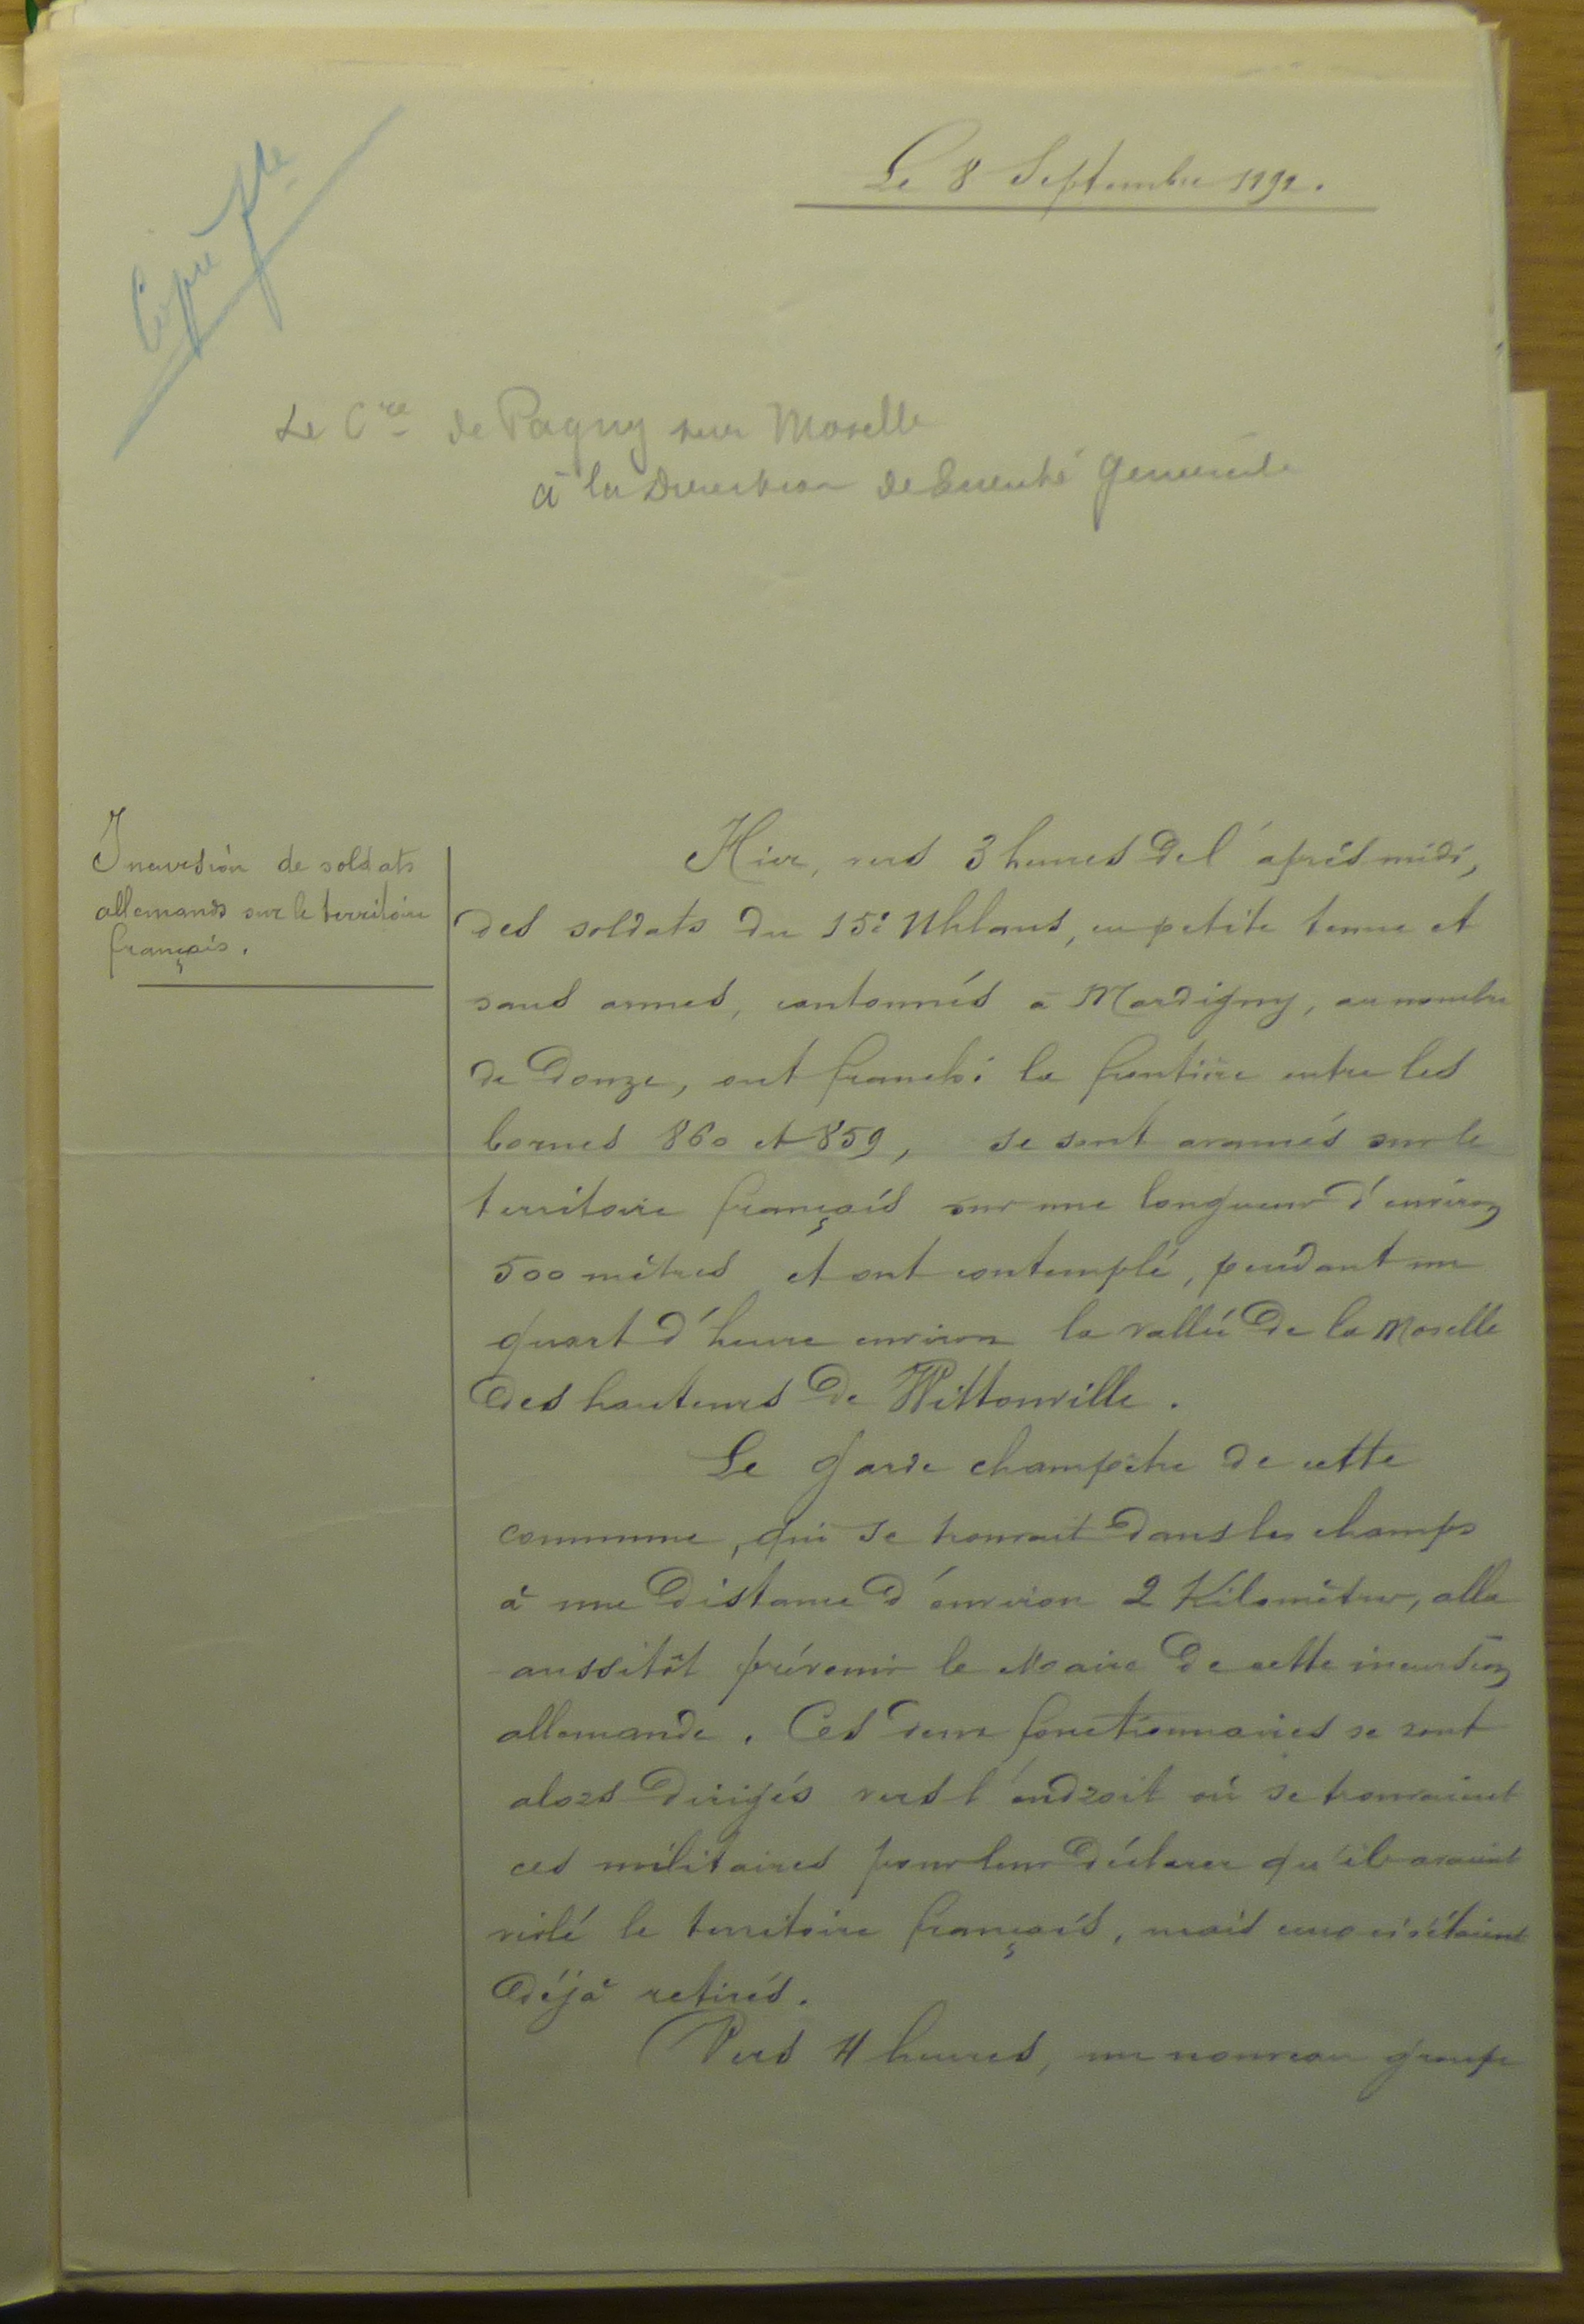 Le 8 Septembre 1891.
Copie pde
Le Cre de Pagny sur Moselle
à la Direction de Sureté générale
Incursion de soldats
allemands sur le territoire
français.
Hier, vers 3 heures de l'après midi,
des soldats du 15e Uhlans, en petite tenue et
sans armes, cantonnés à Mardigny, au nombre
de douze, ont franchi la frontière entre les
bornes 860 et 859, se sont avancés sur le
territoire français sur une longueur d'environ
500 mètres et ont contemplé, pendant un
quart d'heure environ la vallée de la Moselle
des hauteurs de Vittonville.
Le garde champêtre de cette
commune, qui se trouvait dans les champs
à une distance d'environ 2 Kilomètres, alla
aussitôt prévenir le Maire de cette incursion
allemande. Ces deux fonctionnaires se sont
alors dirigés vers l'endroit où se trouvaient
ces militaires pour leur déclarer qu'ils avaient
violé le territoire français, mais ceux ci s'étaient
déjà retirés.
Vers 4 heures, un nouveau groupe